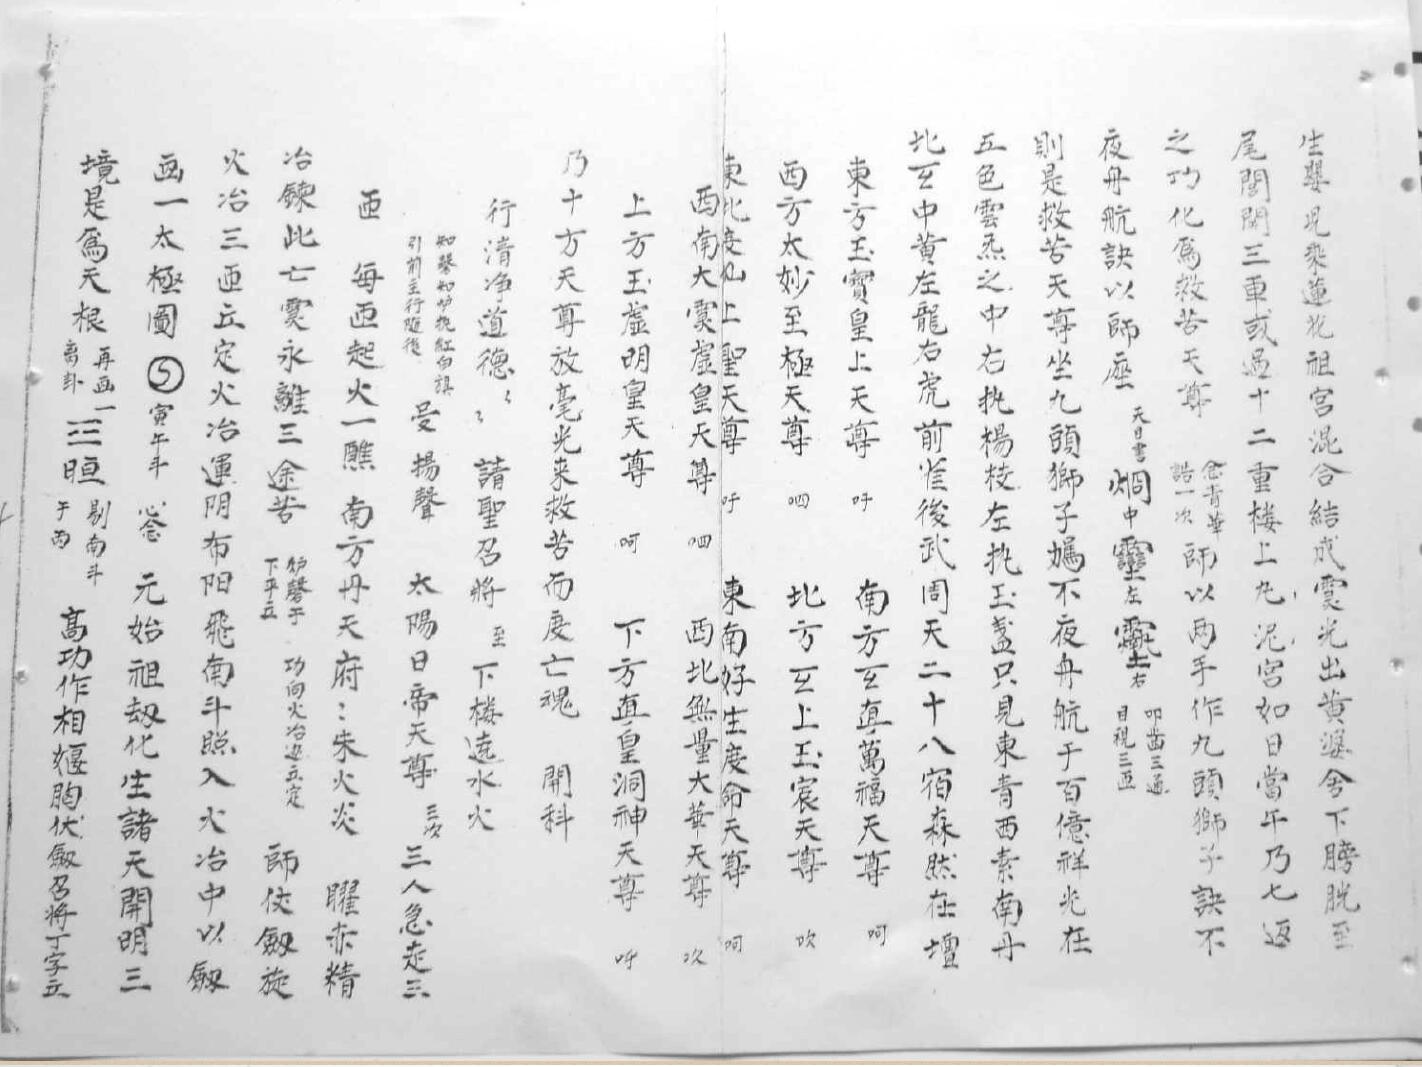 生嬰児乘蓮花祖宮混合結成霛光出黄婆舍下膀胱至
尾閭関三車或過十二重楼上九泥宮如日當午乃七返
之功化為救苦天尊 念青華誥一次 師以两手作九頭獅子訣不
夜舟航訣以師座 天目書 烱中 左 右 叩齒三通 目視三匝
則是救苦天尊坐九頭獅子 不夜舟航于百億祥光在
五色雲炁之中右执楊枝左执玉盞只見東青西素南丹
北玄中黄左龍右虎前雀後武周天二十八宿森然在壇
東方玉寶皇上天尊 呼 南方玄真萬福天尊 呵
西方太妙至極天尊 呬 北方玄上玉宸天尊 吹
東北度仙上聖天尊 呼 東南好生度命天尊 呵
西南大霛虚皇天尊 呬 西北無量大華天尊 吹
上方玉虚明皇天尊 呵 下方真皇洞神天尊 呼
乃十方天尊放毫光来救苦而度亡魂 開科
行清净道德〻〻 請聖召將 至 下楼遶水火
知磬知炉执紅白旗引前主行随後 受揚聲 太陽日帝天尊 三次 三人急走三
匝 每匝起火一醮 南方丹天府〻朱火炎 曜赤精
冶鍊此亡霛永離三途苦 炉磬于下平立 功向火冶边立定 師仗劔旋
火冶三匝立定火冶運阴布阳飛南斗照入火冶中以劔
画一太極圖 寅午斗 心念 元始祖刼化生諸天開明三
境是爲天根 再画一离卦 三 晅 剔南斗于丙 高功作相 胸伏劔召將丁字立